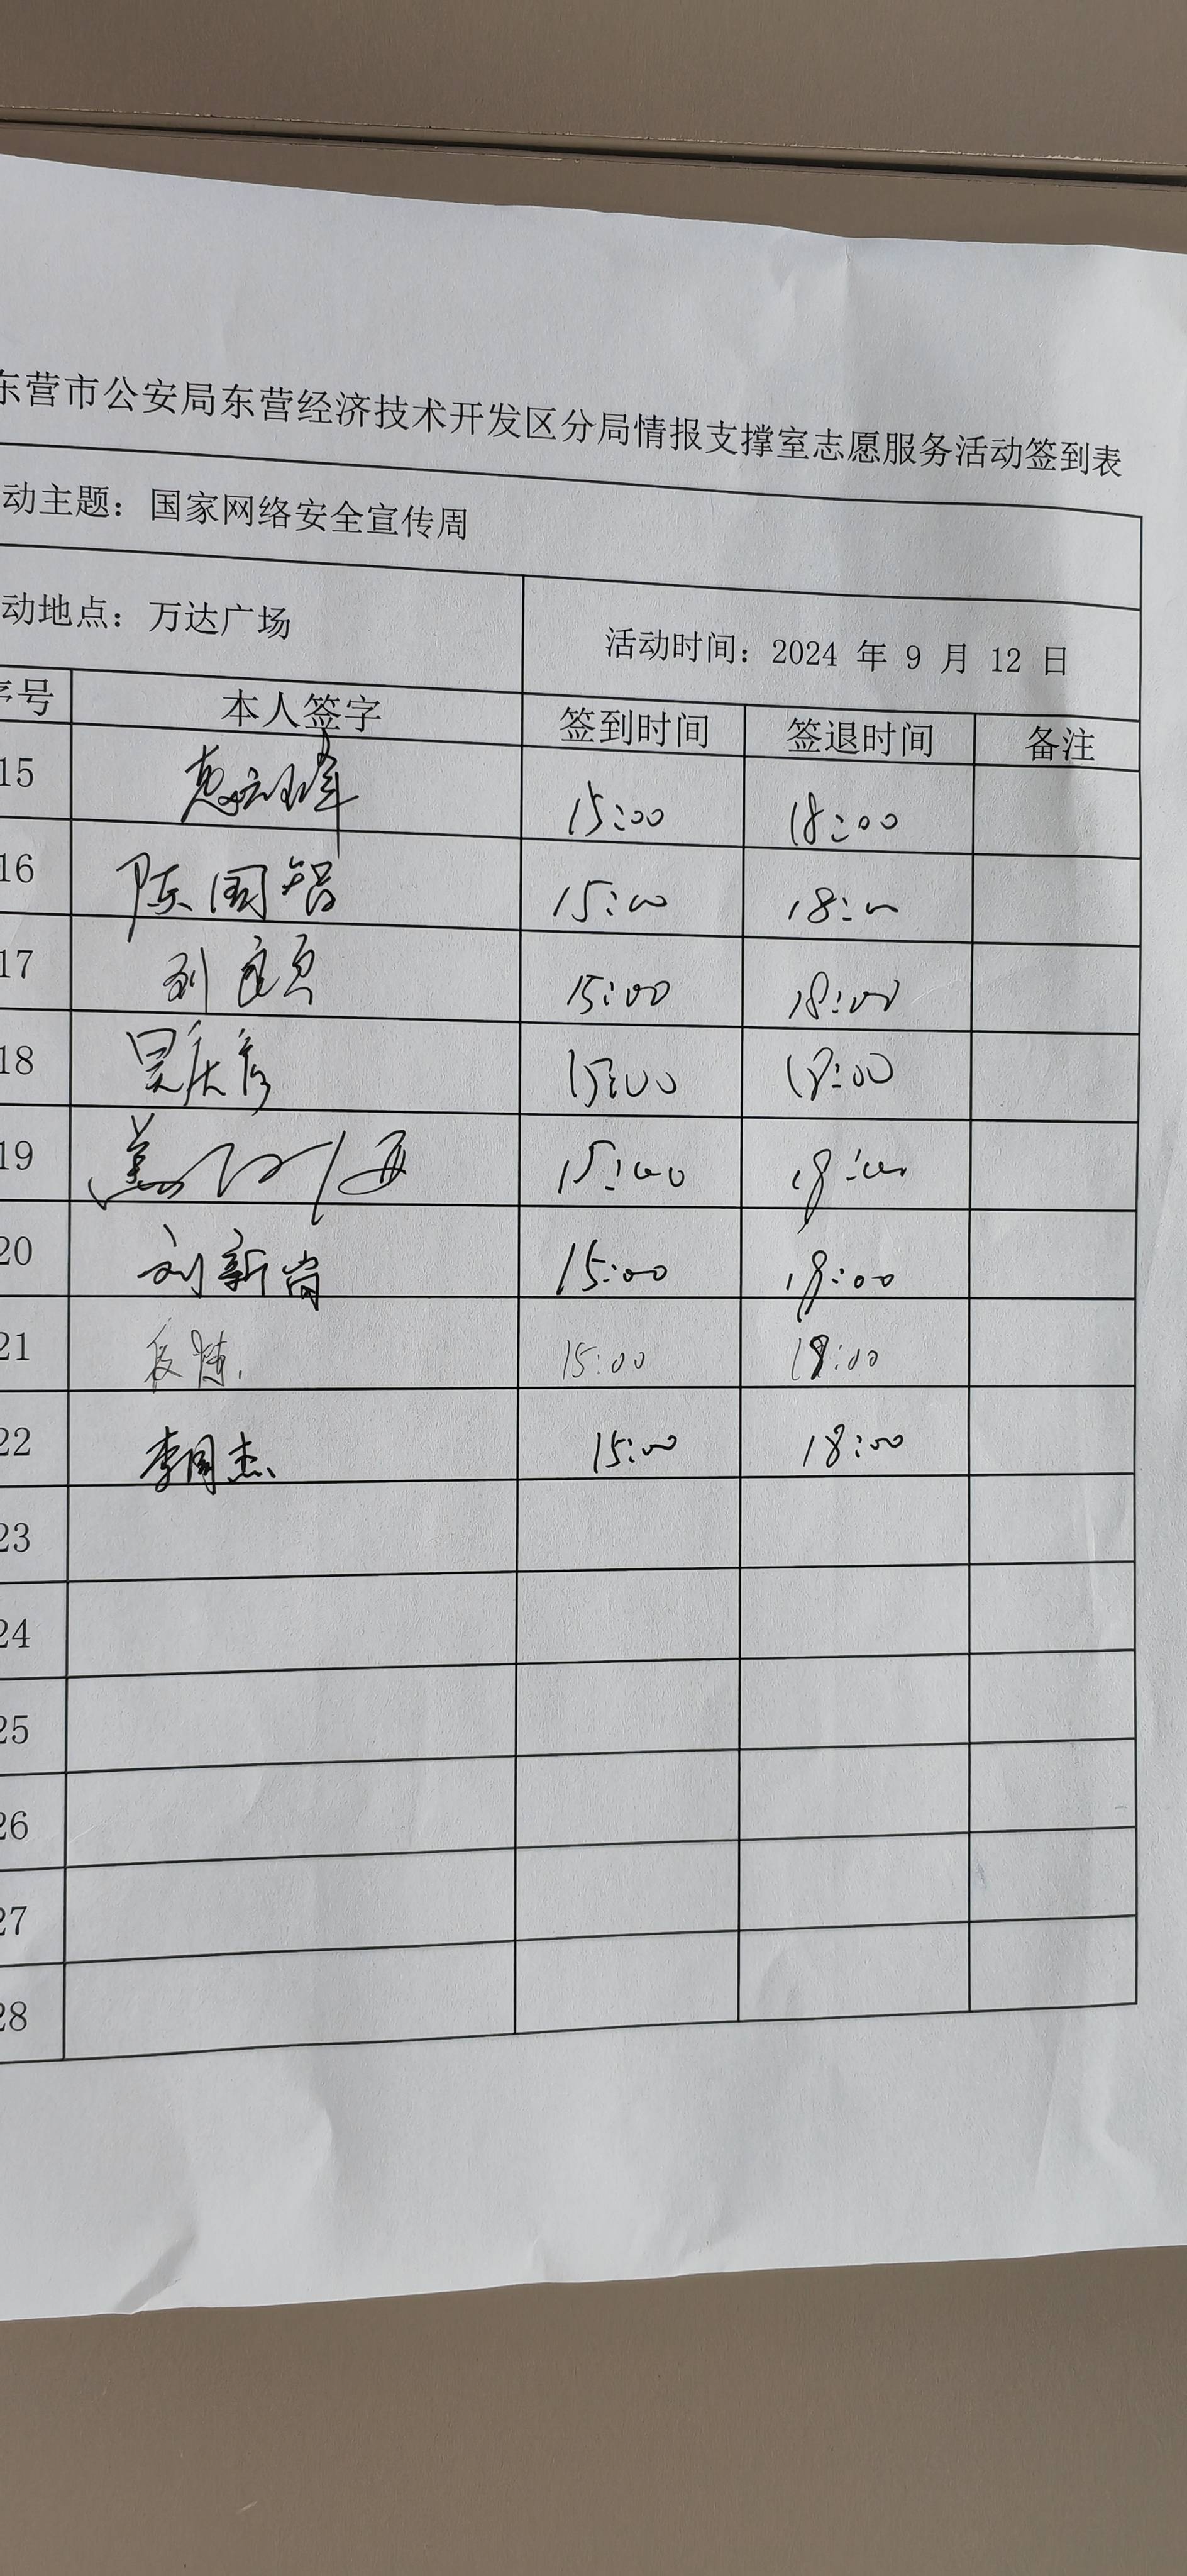 东营市公安局东营经济技术开发区分局情报支撑室志愿服务活动签到表
动主题：国家网络安全宣传周
动地点：万达广场 活动时间：2024 年 9 月 12 日
序号 本人签字 签到时间 签退时间 备注
15 15:00 18:00
16 陈国智 15:00 18:00
17 刘 15:00 18:00
18 吴庆彦 15:00 18:00
19 15:00 18:00
20 刘新尚 15:00 18:00
21 15:00 18:00
22 李同杰 15:00 18:00
23
24
25
26
27
28